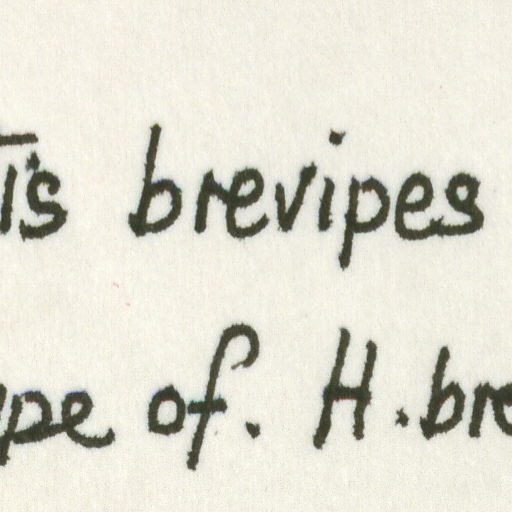 is brevipes
pe of. H.bre